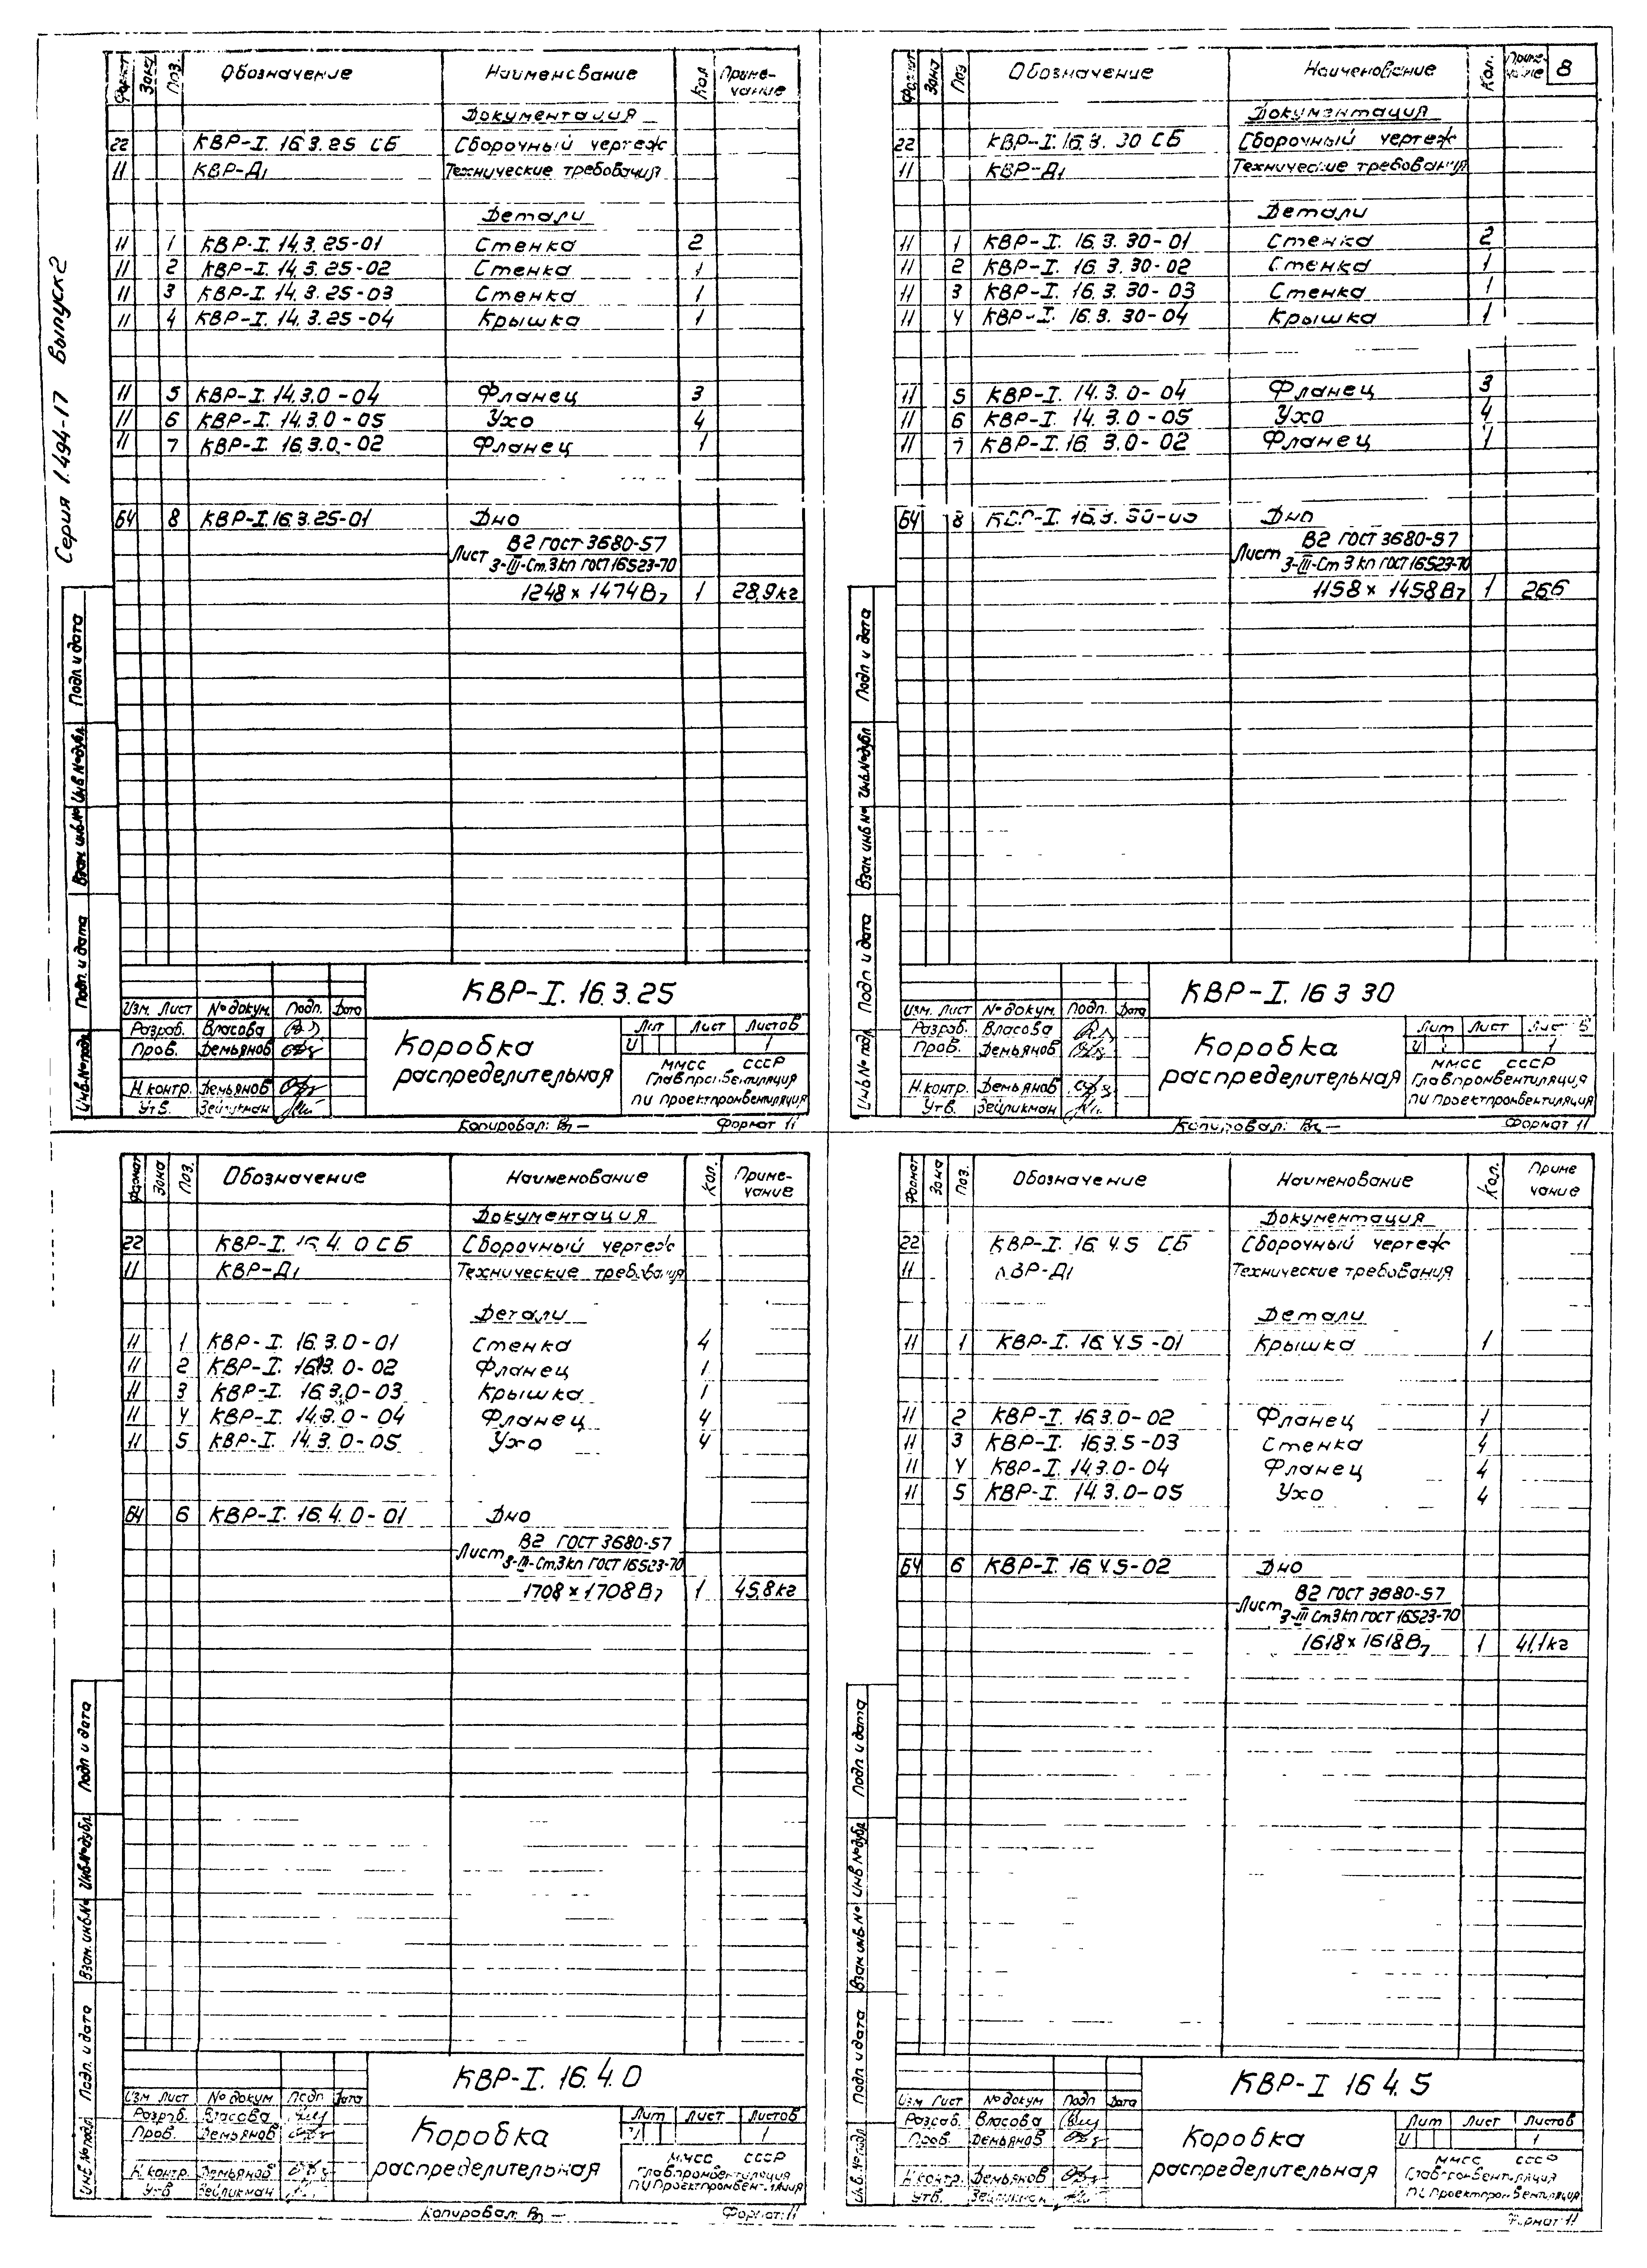 Серия 1.494-17 Выпуск 2
Формат Зона Поз. Обозначение Наименование Кол Приме-чание
Документация
22 КВР-I. 16.3.25 СБ Сборочный чертеж
11 КВР-Д1 Технические требования
Детали
11 1 КВР-I. 14.3.25-01 Стенка 2
11 2 КВР-I. 14.3.25-02 Стенка 1
11 3 КВР-I. 14.3.25-03 Стенка 1
11 4 КВР-I. 14.3.25-04 Крышка 1
11 5 КВР-I. 14.3.0-04 Фланец 3
11 6 КВР-I. 14.3.0-05 Ухо 4
11 7 КВР-I. 16.3.0-02 Фланец 1
БЧ 8 КВР-I. 16.3.25-01 Дно
В2 ГОСТ 3680-57
Лист
3-III-Ст.3кп ГОСТ 16523-70
1248 × 1474 Вп 1 28,9кг
Подп и дата
Инв № дубл.
Взам инв. №
Подп. и дата
Инв. № подл.
КВР-I. 16.3.25
Изм. Лист № докум. Подп. Дата
Разраб. Власова
Пров. Демьянов
Н.контр. Демьянов
Утв. Зейликман
Коробка
распределительная
Лит Лист Листов
И 1
ММСС СССР
Главпромвентиляция
ПИ Проектпромвентиляция
Копировал: Вп - Формат 11
8
Формат Зона Поз Обозначение Наименование Кол. Приме-чание
Документация
22 КВР-I. 16.3.30 СБ Сборочный чертеж
11 КВР-Д1 Технические требования
Детали
11 1 КВР-I. 16.3.30-01 Стенка 2
11 2 КВР-I. 16.3.30-02 Стенка 1
11 3 КВР-I. 16.3.30-03 Стенка 1
11 4 КВР-I. 16.3.30-04 Крышка 1
11 5 КВР-I. 14.3.0-04 Фланец 3
11 6 КВР-I. 14.3.0-05 Ухо 4
11 7 КВР-I. 16.3.0-02 Фланец 1
БЧ 8 Дно
В2 ГОСТ 3680-57
Лист
3-III-Ст 3кп ГОСТ 16523-70
1158 × 1458 Вп 1 26,6
Подп и дата
Инв. № дубл
Взам инв №
Подп и дата
Инв № подл
КВР-I. 16 3 30
Изм. Лист № докум. Подп. Дата
Разраб. Власова
Пров. Демьянов
Н.контр. Демьянов
Утв. Зейликман
Коробка
распределительная
Лит Лист
И 1
ММСС СССР
Главпромвентиляция
ПИ Проектпромвентиляция
Копировал: Вп - Формат 11
Формат Зона Поз. Обозначение Наименование Кол. Приме-чание
Документация
22 КВР-I. 16.4.0 СБ Сборочный чертеж
11 КВР-Д1 Технические требования
Детали
11 1 КВР-I. 16.3.0-01 Стенка 4
11 2 КВР-I. 16.3.0-02 Фланец 1
11 3 КВР-I. 16.3.0-03 Крышка 1
11 4 КВР-I. 14.3.0-04 Фланец 4
11 5 КВР-I. 14.3.0-05 Ухо 4
БЧ 6 КВР-I. 16.4.0-01 Дно
В2 ГОСТ 3680-57
Лист
3-III-Ст3кп ГОСТ 16523-70
1708 × 1708 Вп 1 45,8кг
Подп и дата
Инв. № дубл.
Взам. инв. №
Подп. и дата
Инв № подл
КВР-I. 16.4.0
Изм Лист № докум Подп Дата
Разраб. Власова
Пров. Демьянов
Н.контр. Демьянов
Утв Зейликман
Коробка
распределительная
Лит Лист Листов
И 1
ММСС СССР
Главпромвентиляция
ПИ Проектпромвентиляция
Копировал: Вп - Формат 11
Формат Зона Поз. Обозначение Наименование Кол. Приме чание
Документация
22 КВР-I. 16.4.5 СБ Сборочный чертеж
11 КВР-Д1 Технические требования
Детали
11 1 КВР-I. 16.4.5-01 Крышка 1
11 2 КВР-I. 16.3.0-02 Фланец 1
11 3 КВР-I. 16.3.5-03 Стенка 4
11 4 КВР-I. 14.3.0-04 Фланец 4
11 5 КВР-I. 14.3.0-05 Ухо 4
БЧ 6 КВР-I. 16.4.5-02 Дно
В2 ГОСТ 3680-57
Лист
3-III Ст3кп ГОСТ 16523-70
1618 × 1618 Вп 1 41,1кг
Подп и дата
Инв № дубл
Взам инв. №
Подп и дата
Инв. № подл
КВР-I 16 4.5
Изм Лист № докум Подп Дата
Разраб. Власова
Пров. Демьянов
Н.контр. Демьянов
Утв. Зейликман
Коробка
распределительная
Лит Лист Листов
И 1
ММСС СССР
Главпромвентиляция
ПИ Проектпромвентиляция
Формат 11